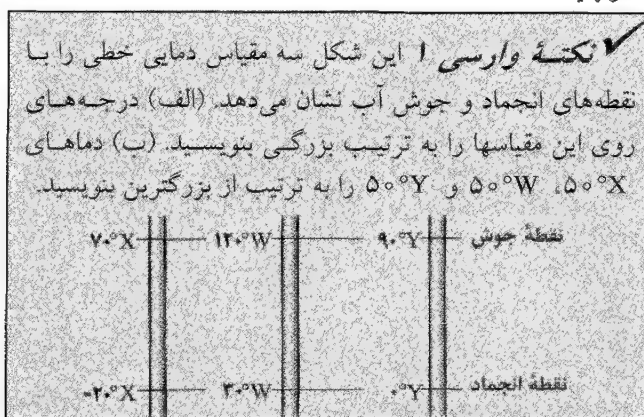 ✓ نکتهٔ وارسی ۱ این شکل سه مقیاس دمایی خطی را با
نقطه‌های انجماد و جوش آب نشان می‌دهد. (الف) درجه‌های
روی این مقیاسها را به ترتیب بزرگی بنویسید. (ب) دماهای
۵۰°X، ۵۰°W و ۵۰°Y را به ترتیب از بزرگترین بنویسید.
نقطهٔ جوش ۹۰°Y ۱۲۰°W ۷۰°X
نقطهٔ انجماد ۰°Y ۳۰°W -۲۰°X